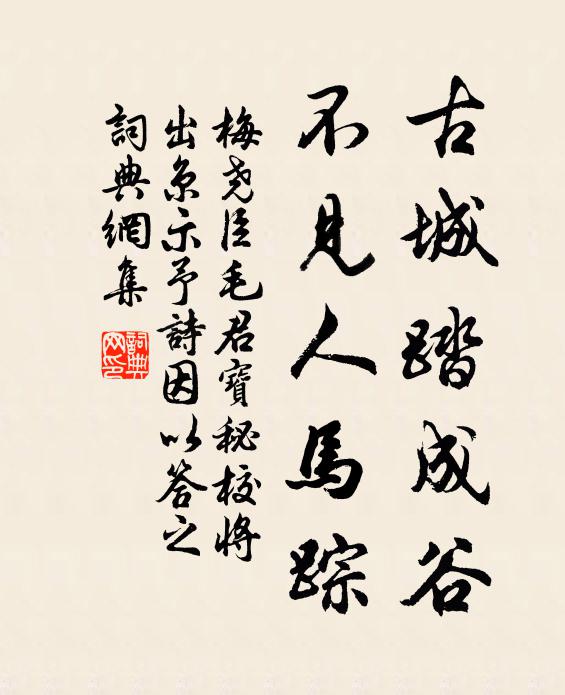 古城踏成谷
不見人馬踪
梅尧臣毛君寶秘校将
出京示予詩因以答之
詞典網集
詞典网印